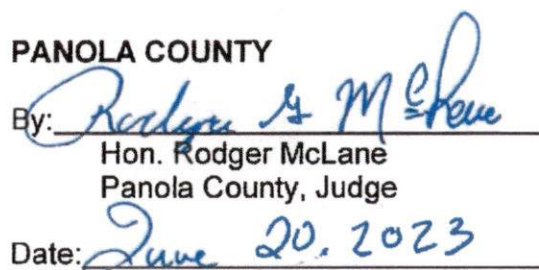 PANOLA COUNTY
By: Rodger G McLane
Hon. Rodger McLane
Panola County, Judge
Date: June 20, 2023